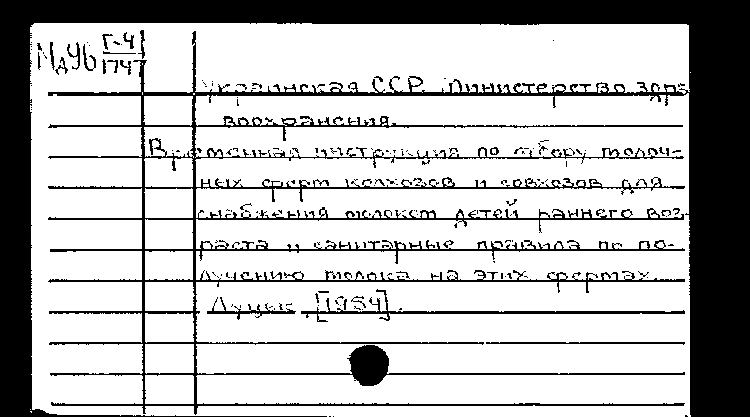 МдУб Г-4/1747
Украинская ССР. Министерство здра-
воохранения.
Временная инструкция по отбору молоч-
ных ферм колхозов и совхозов для
снабжения молоком детей раннего воз-
раста и санитарные правила по по-
лучению молока на этих фермах.
Луцьк, [1954].